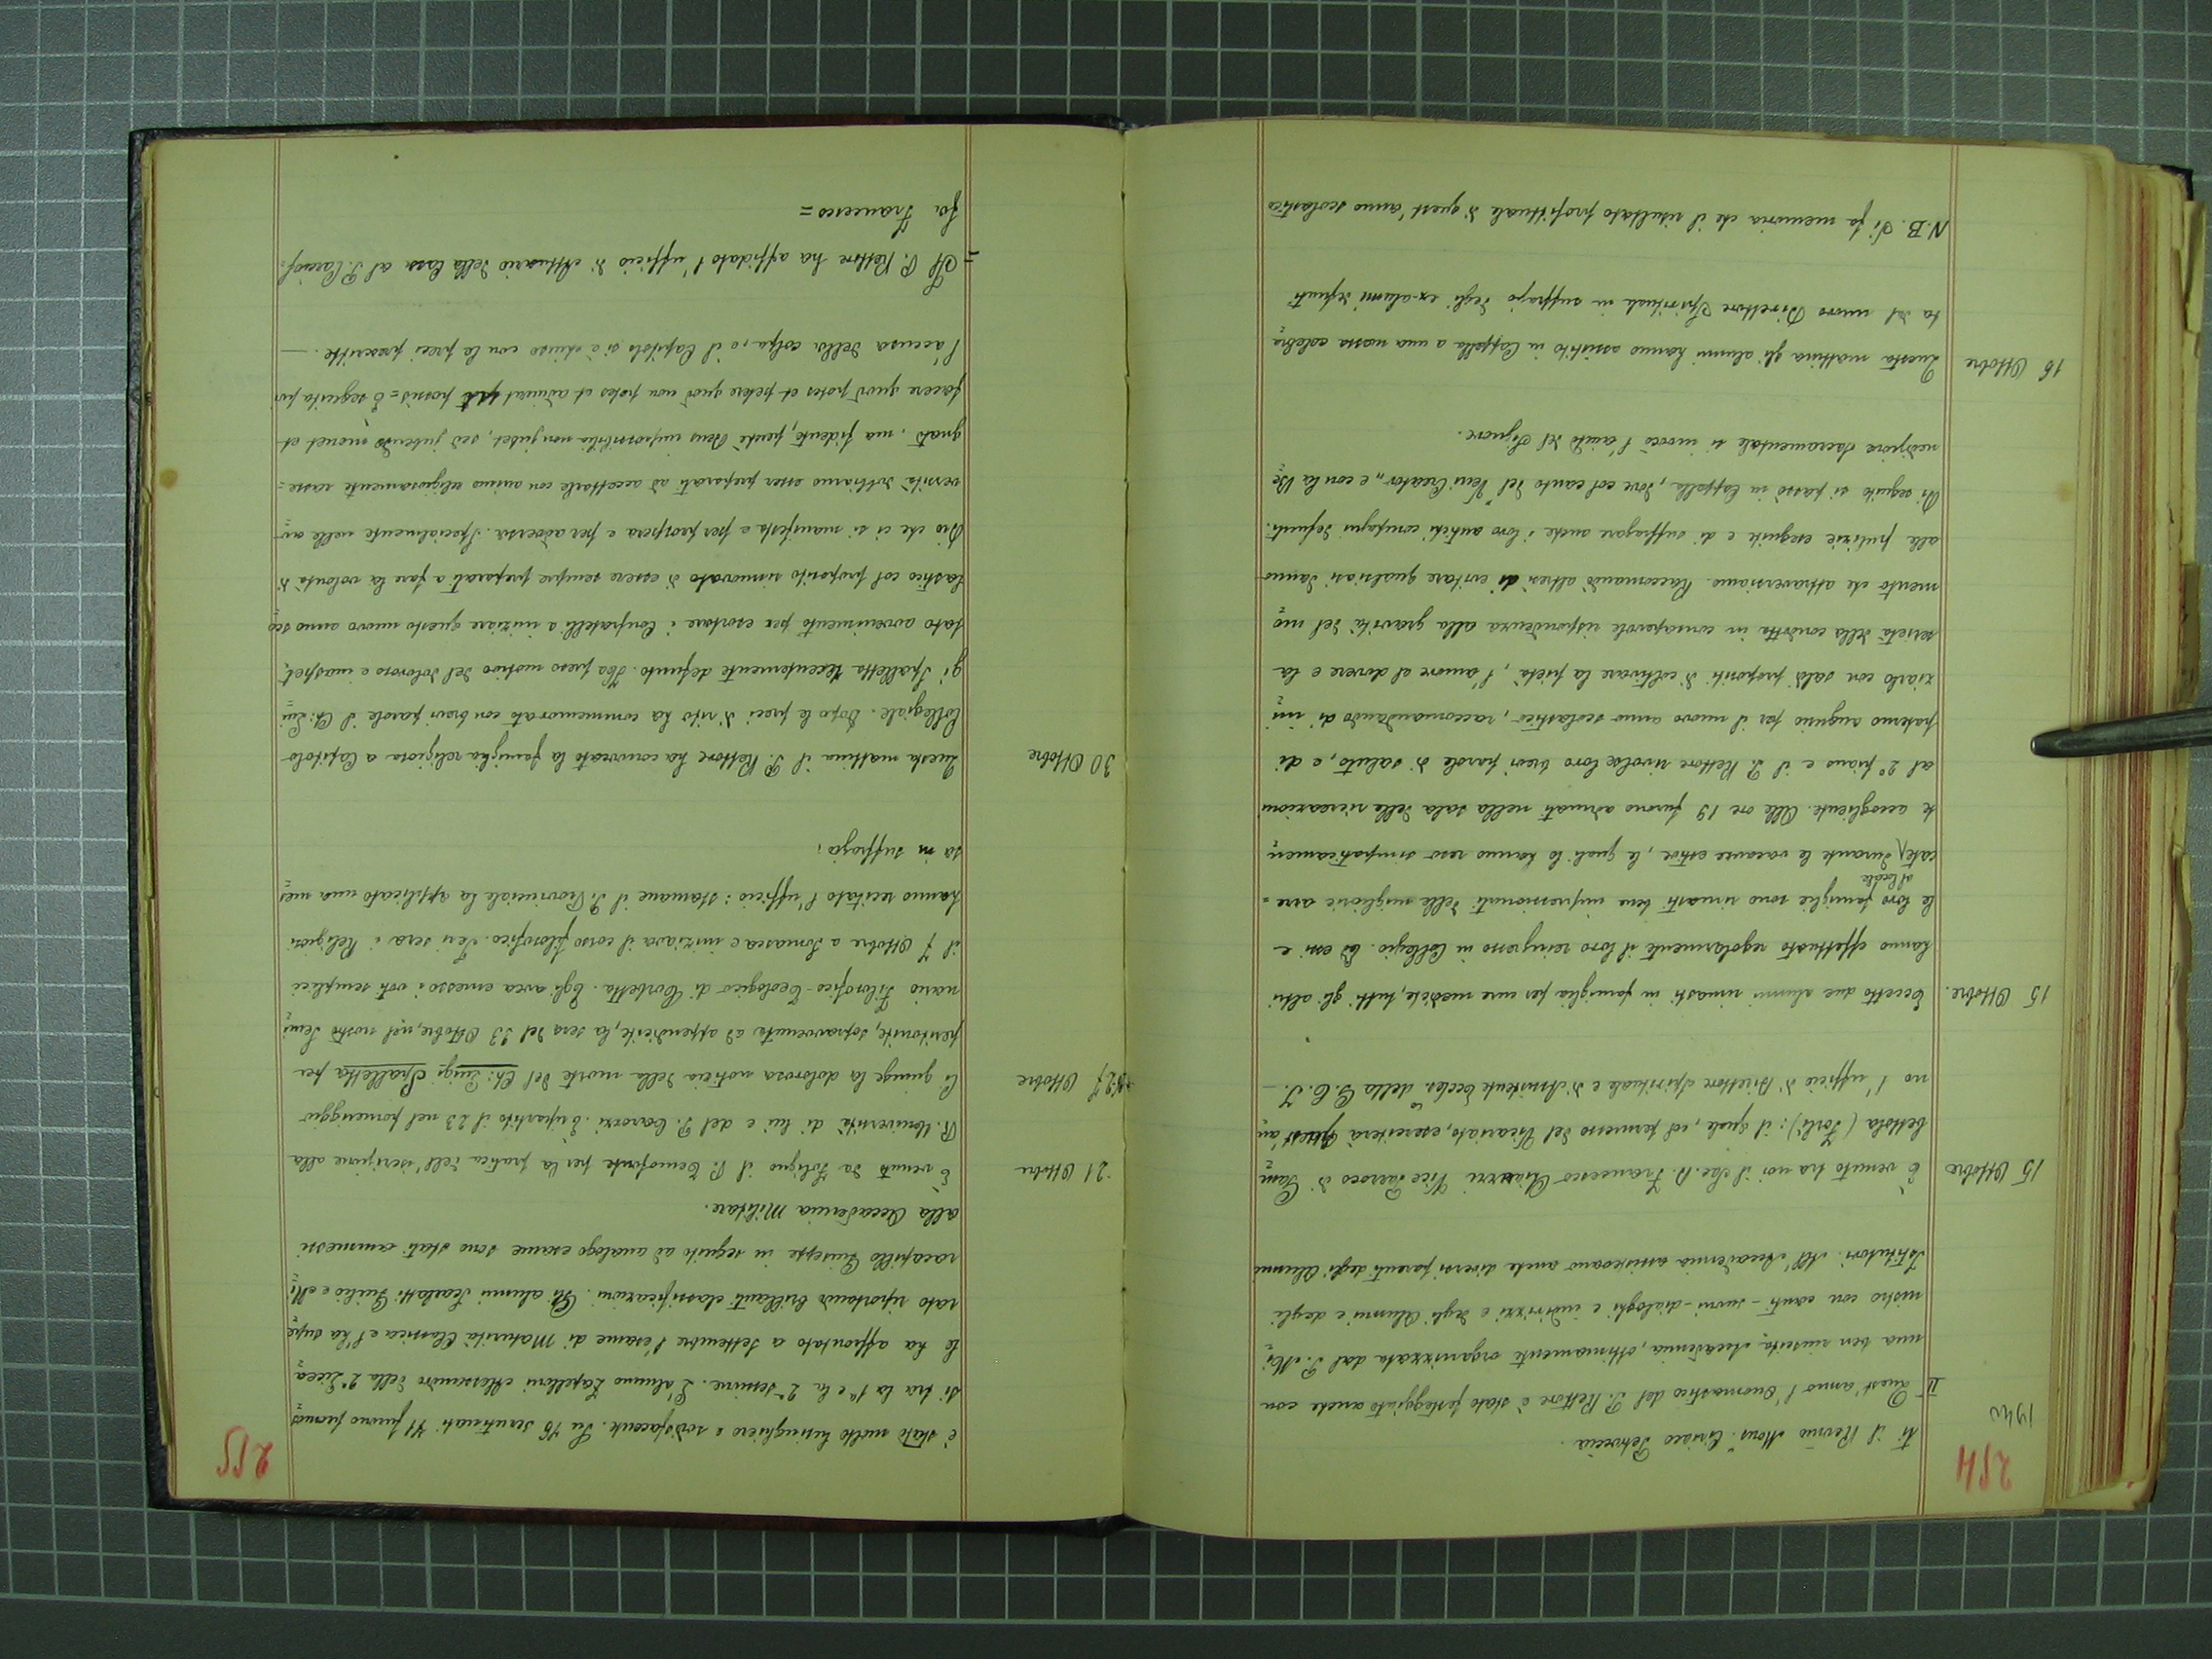 254
1940
ti il Rev.mo Mons. Ciriaco Petroccia.
II Quest'anno l'Onomastico del P. Rettore è stato festeggiato anche con
una ben riuscita Accademia, ottimamente organizzata dal P. Mi=
nistro con canti - suoni - dialoghi e indirizzi e degli Alunni e degli
Istitutori. All'Accademia assistevano anche diversi parenti degli Alunni
15 Ottobre
È venuto tra noi il Sac. D. Francesco Vice Parroco di
bettola (Forlì): il quale, col permesso del Vicariato, eserciterà quest'an=
no l'ufficio di Direttore Spirituale e di Assistente Eccles.co della G.C.I. —
15 Ottobre.
Eccetto due alunni rimasti in famiglia per cure mediche, tutti gli altri
hanno effettuato regolarmente il loro reingresso in Collegio. Ed essi e
le loro famiglie sono rimasti bene impressionati delle migliorie arre=
cate al locale durante le vacanze estive, le quali lo hanno reso simpaticamen=
te accogliente. Alle ore 19 furono adunati nella sala delle ricreazioni
al 2° piano e il P. Rettore rivolse loro brevi parole di saluto, e di
paterno augurio per il nuovo anno scolastico, raccomandando di ini=
ziarlo con saldi propositi di coltivare la pietà, l'amore al dovere e la
serietà della condotta in consapevole rispondenza alla gravità del mo=
mento che attraversiamo. Raccomandò altresì di evitare qualsiasi danno
alle pulizie eseguite e di suffragare anche i loro antichi compagni defunti.
Di seguito si passò in Cappella, dove col canto del "Veni Creator" e con la Be=
nedizione Sacramentale si invocò l'aiuto del Signore.
16 Ottobre
Questa mattina gli alunni hanno assistito in Cappella a una messa celebra=
ta dal nuovo Direttore Spirituale in suffragio degli ex-alunni defunti
N.B. Si fa memoria che il risultato profittuale di quest'anno scolastico
255
è stato molto lusinghiero e sodisfacente. Su 76 scrutinati 71 furono promos=
si tra la 1ª e la 2ª sessione. L'alunno Zapelloni Alessandro della 2ª Licea=
le ha affrontato a Settembre l'esame di Maturità Classica e l'ha supe=
rato riportando brillanti classificazioni. Gli alunni Scarlatti Giulio e Mi=
racapillo Giuseppe in seguito ad analogo esame sono stati ammessi
alla Accademia Militare.
21 Ottobre
È venuto da Foligno il P. per la pratica dell'iscrizione alla
R. Università di lui e del P. Carozzi. È ripartito il 23 nel pomeriggio
27 Ottobre
Ci giunge la dolorosa notizia della morte del Ch: Luigi Spalletta per
peritonite, sopravvenuta ad appendicite, la sera del 23 Ottobre, nel nostro Semi=
nario Filosofico-Teologico di Corbetta. Egli avea emesso i voti semplici
il 7 Ottobre a Somasca e iniziava il corso filosofico. Ieri sera i Religiosi
hanno recitato l'ufficio: stamane il P. Provinciale ha applicato una mes=
sa in suffragio;
30 Ottobre
Questa mattina il P. Rettore ha convocato la famiglia religiosa a Capitolo
Collegiale. Dopo le preci di rito ha commemorato con brevi parole il Ch: Lui=
gi Spalletta recentemente defunto. Ha preso motivo dal doloroso e inaspet=
tato avvenimento per esortare i Confratelli a iniziare questo nuovo anno sco=
lastico col proposito rinnovato di essere sempre preparati a fare la volontà di
Dio che ci si manifesta e per prospera e per adversa. Specialmente nelle av=
versità dobbiamo esser preparati ad accettarle con animo religiosamente rasse=
gnato. ma fidente, perchè Deus impossibilia non jubet, sed jubendo monet et
facere quod potes et petere quod non potes et adiuvat ut possis = È seguita poi
l'accusa della colpa, e il Capitolo si è chiuso con le preci prescritte. —
= Il P. Rettore ha affidato l'ufficio di Attuario della Casa al P.
fa Francesco =